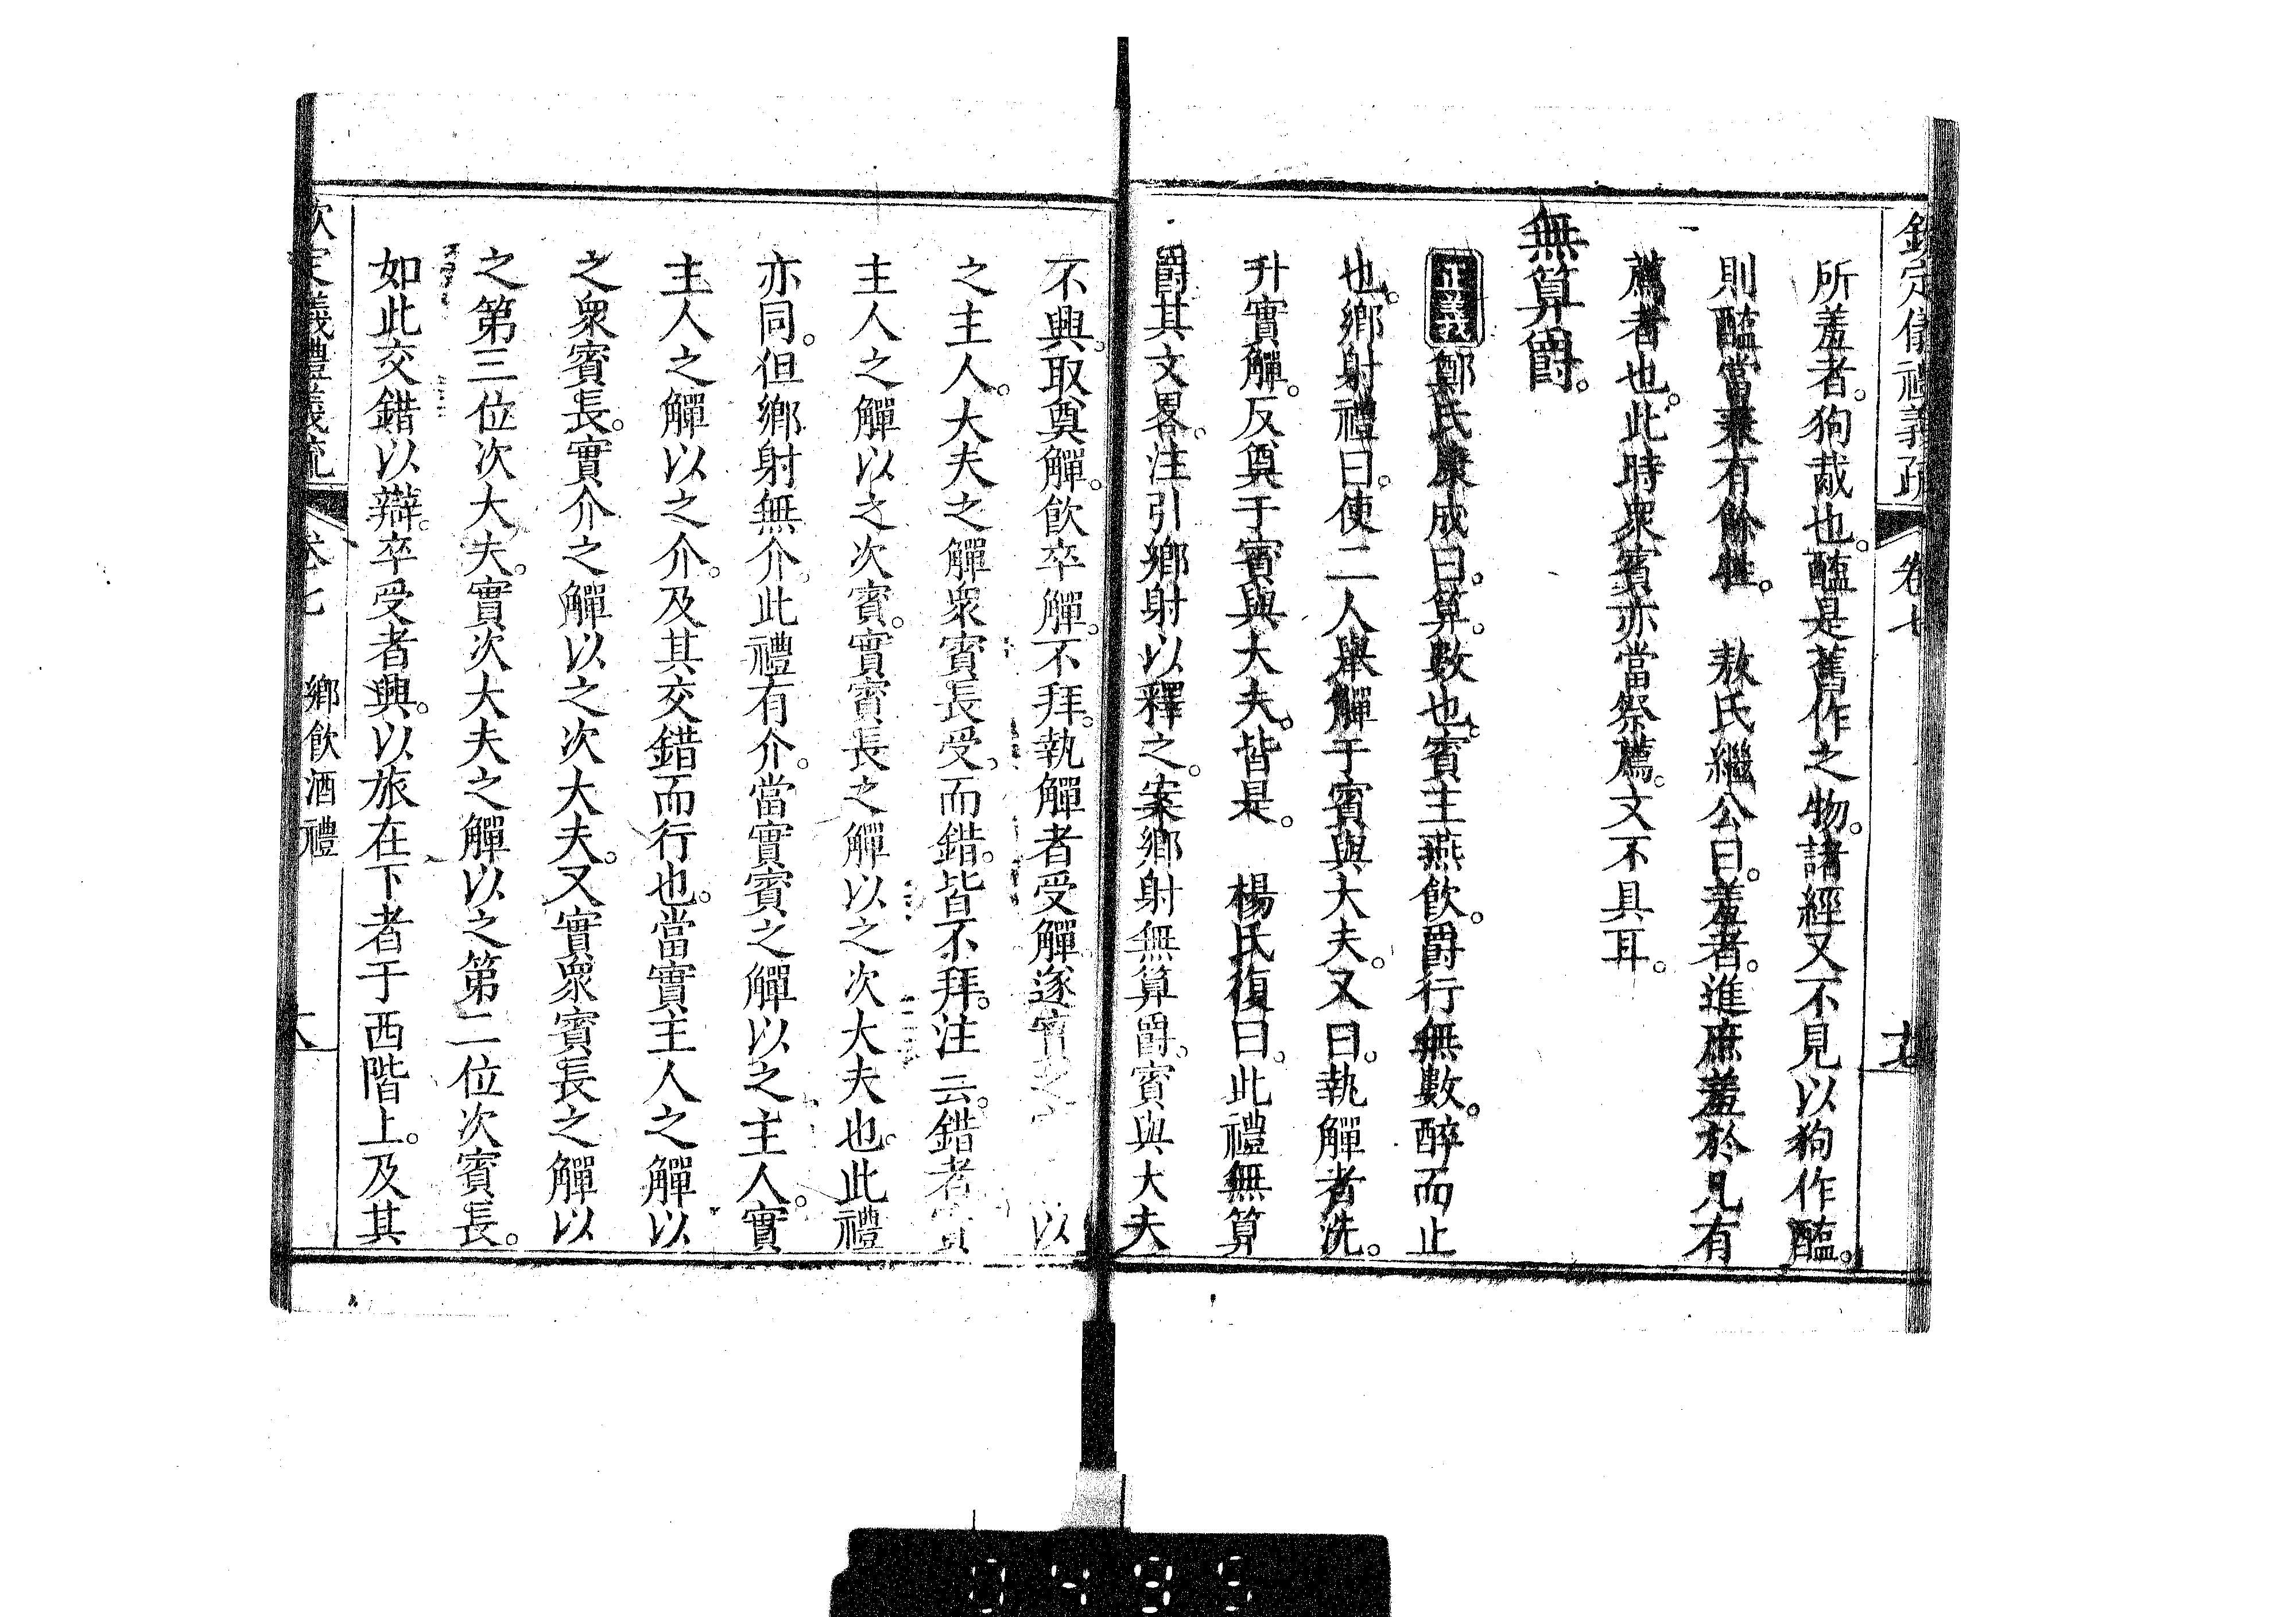 欽定儀禮義疏 卷七 十七
所羞者。狗胾也。醢是舊作之物。諸經又不見以狗作醢。
則醢當兼有餘牲。 敖氏繼公曰。羞者。進庶羞於凡有
薦者也。此時衆賓亦當祭薦。文不具耳。
無算爵。
正義 鄭氏康成曰。算。數也。賓主燕飲。爵行無數。醉而止
也。鄉射禮曰。使二人舉觶于賓與大夫。又曰。執觶者洗。
升實觶。反奠于賓與大夫。皆是。 楊氏復曰。此禮無算
爵其文畧。注引鄉射以釋之。案鄉射無算爵。賓與大夫
不興。取奠觶。飲卒觶。不拜。執觶者受觶遂實之 以
之主人。大夫之觶衆賓長受。而錯。皆不拜。注云。錯者實
主人之觶以之次賓。實賓長之觶以之次大夫也。此禮
亦同。但鄉射無介。此禮有介。當實賓之觶以之主人。實
主人之觶以之介。及其交錯而行也。當實主人之觶以
之衆賓長。實介之觶以之次大夫。又實衆賓長之觶以
之第三位次大夫。實次大夫之觶以之第二位次賓長。
如此交錯以辯。卒受者興。以旅在下者于西階上。及其
欽定義禮義疏 卷七 鄉飲酒禮 十八